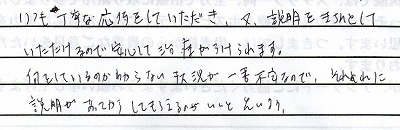 いつも丁寧な応対をしていただき、又、説明をきちんとして
いただけるので安心して治療がうけられます。
何をしているのかわからない状況が一番不安なので、それぞれに
説明があってからしてもらえるのがいいと思います。